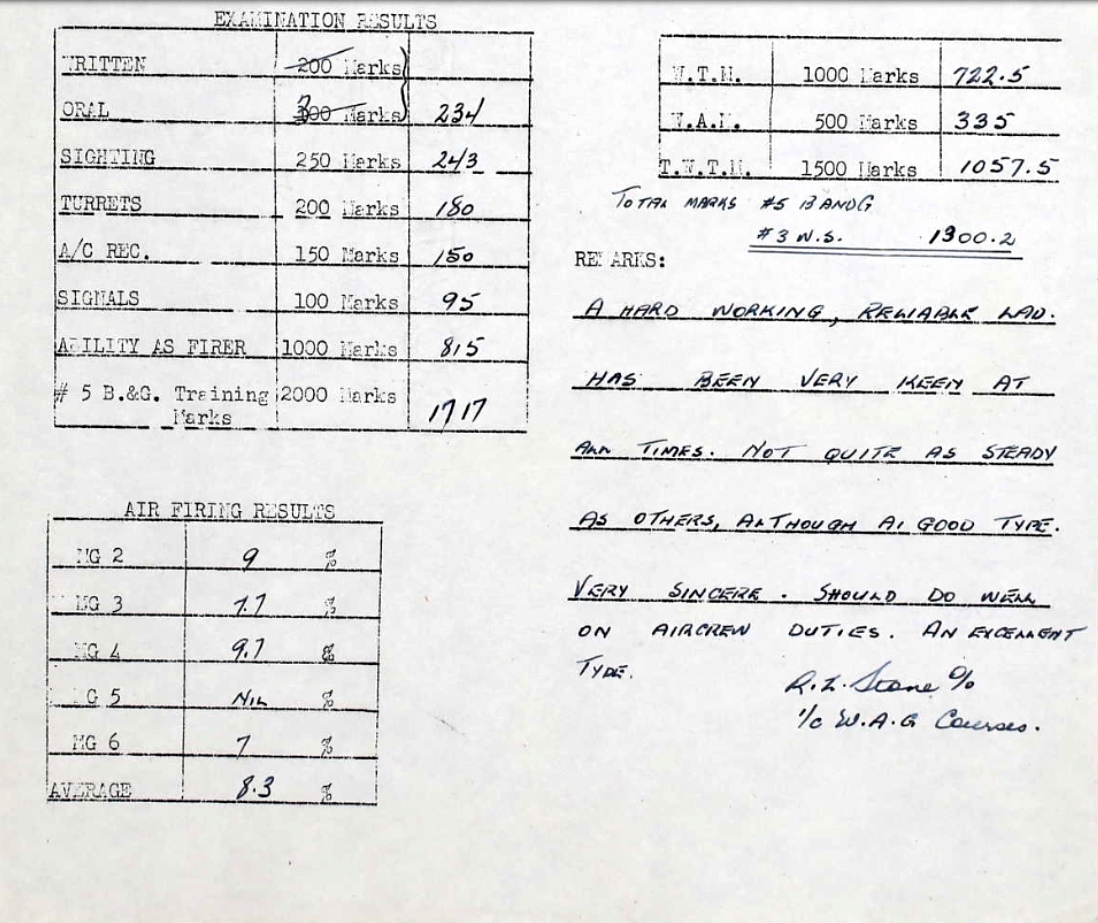 EXAMINATION RESULTS
WRITTEN 200 Marks
ORAL 300 Marks 234
SIGHTING 250 Marks 243
TURRETS 200 Marks 180
A/C REC. 150 Marks 150
SIGNALS 100 Marks 95
ABILITY AS FIRER 1000 Marks 815
# 5 B.&G. Training 2000 Marks 1717
Marks
AIR FIRING RESULTS
MG 2 9 %
MG 3 7.7 %
MG 4 9.7 %
MG 5 NIL %
MG 6 7 %
AVERAGE 8.3 %
W.T.M. 1000 Marks 722.5
W.A.M. 500 Marks 335
T.W.T.M. 1500 Marks 1057.5
TOTAL MARKS #5 B AND G
#3 W.S. 1300.2
REMARKS:
A HARD WORKING, RELIABLE LAD.
HAS BEEN VERY KEEN AT
ALL TIMES. NOT QUITE AS STEADY
AS OTHERS, ALTHOUGH A1 GOOD TYPE.
VERY SINCERE. SHOULD DO WELL
ON AIRCREW DUTIES. AN EXCELLENT
TYPE.
R.L. Stone F/O
I/C W.A.G Courses.